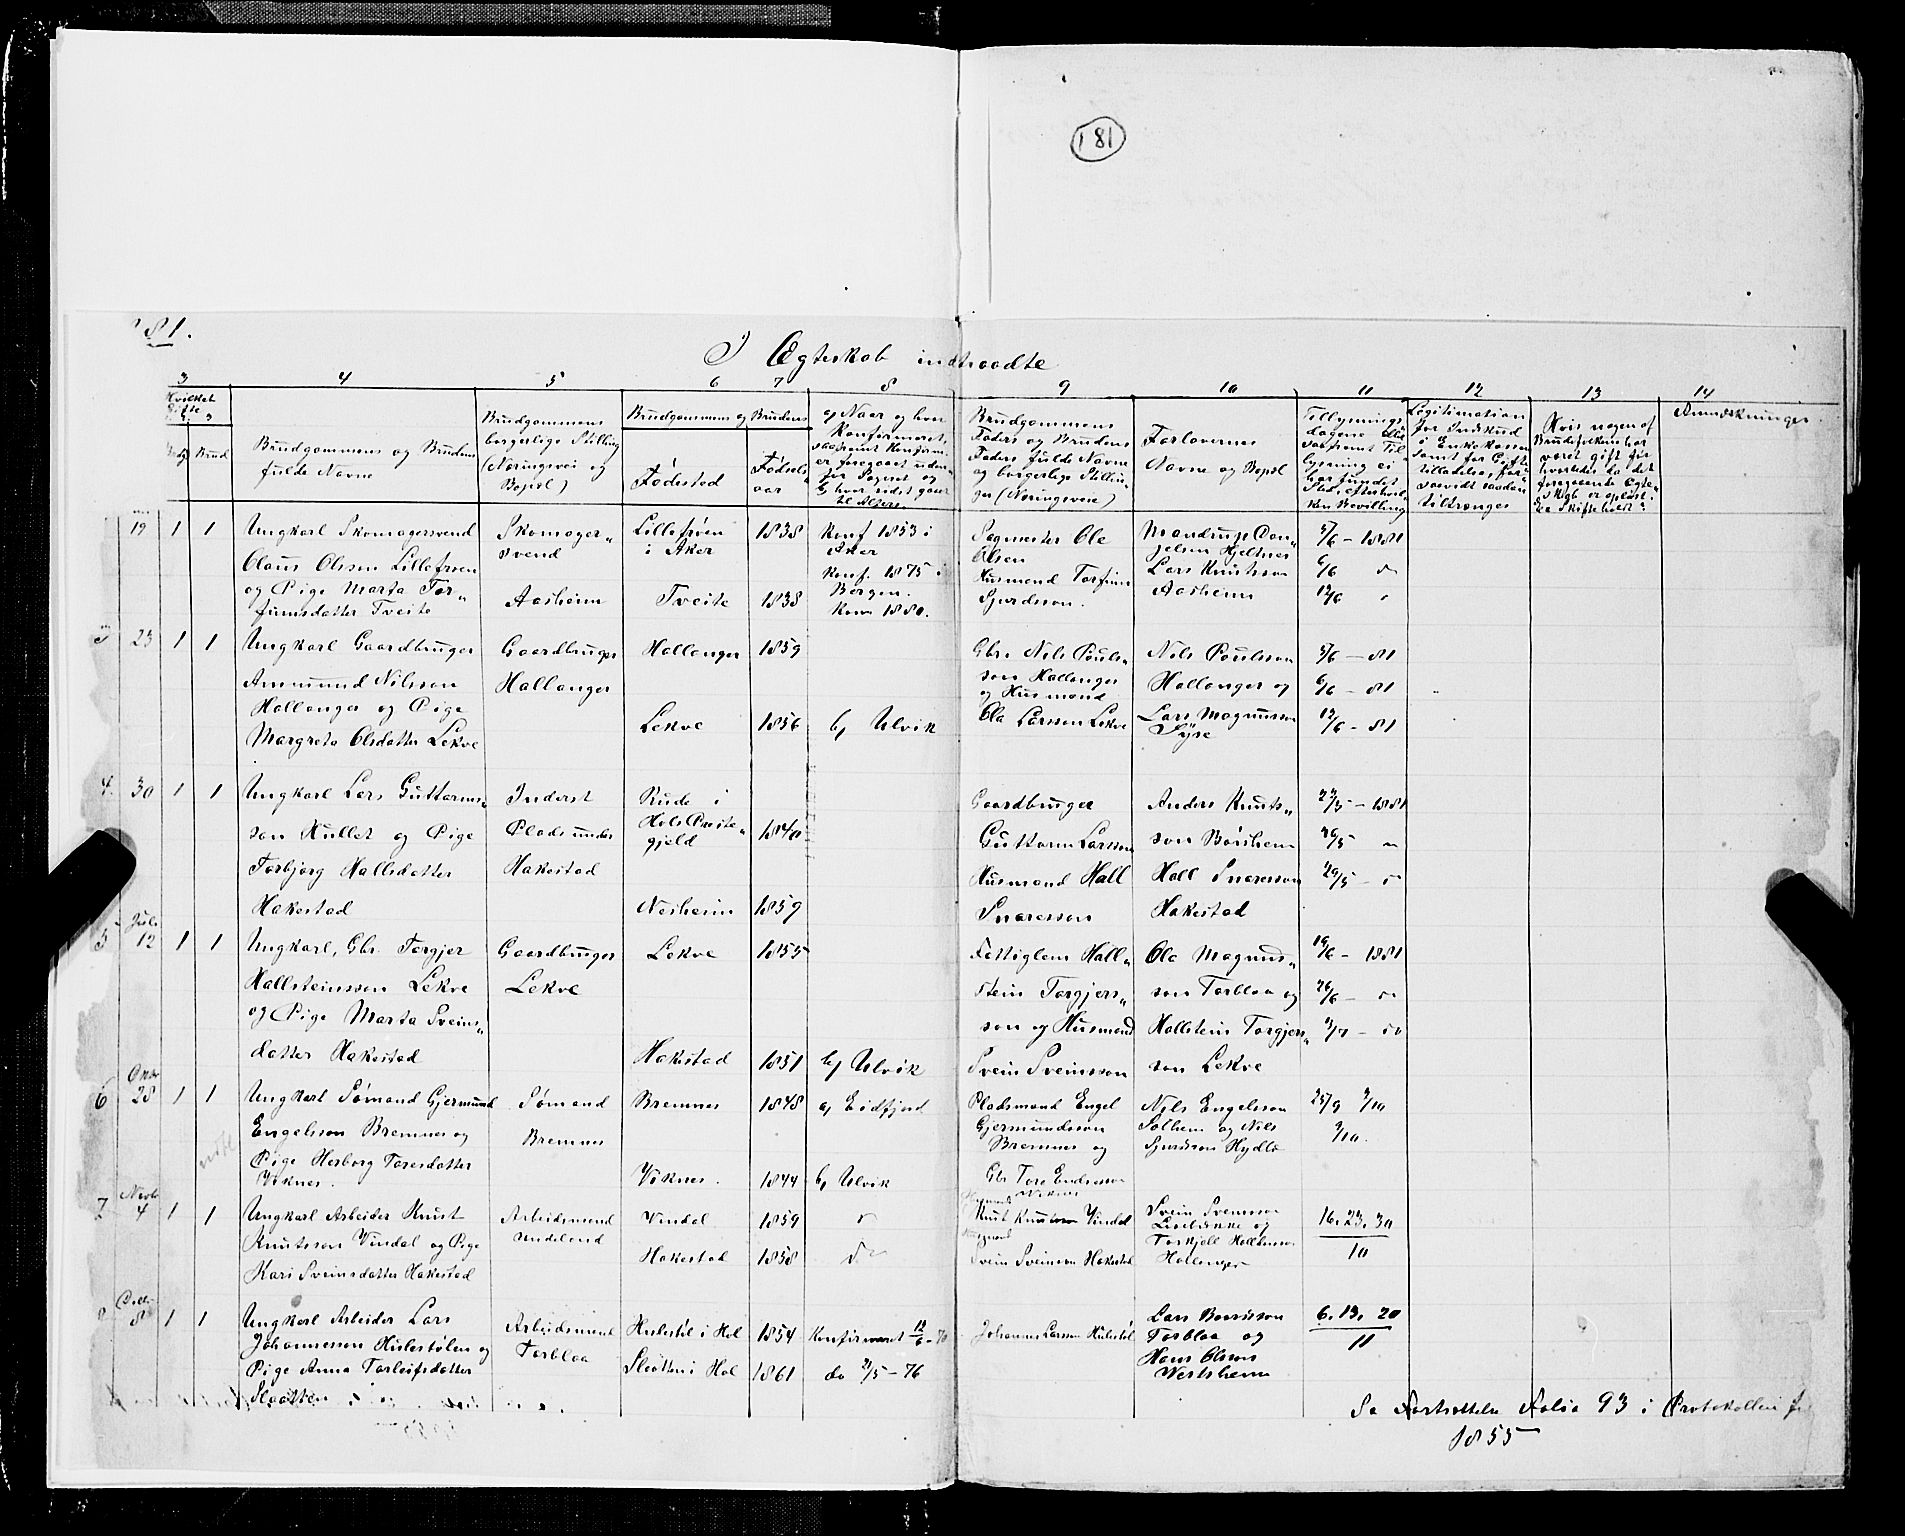 181
81.
I Ægteskab indtraadte
3 4 5 6 7 8 9 10 11 12 13 14
Hvilket
Brud
Brudgommens og Brudens
fulde Navne
Brudgommens
borgerlige Stilling
(Næringsvei og
Bopæl)
Brudgommens og Brudens
Fødested
Fødsels
aar
a, Naar og hvor
Konfirmeret,
Brudgommens
Faders og Brudens
Faders fulde Navne
og borgerlige Stillin-
ger (Næringsveie)
Forlovernes
Navne og Bopæl
Tillysnings
dagene
Legitimation
for Indskud
i Enkekassen
samt for Gifte
tilladelse, for
saavidt saadan
tiltrænges
Hvis nogen af
Brudefolkene har
været gift før
Anmerkninger
19 1 1
Ungkarl Skomagersvend
Olaus Olsen Lillefrøen
og Pige Marta Tor-
finnsdatter Tveite
Skomager-
svend
Aasheim
Lillefrøen
i Aker
Tveite
1838
1838
Konf 1853 i
Aker
Konf. 1875 i
Bergen.
Kom 1880.
Sagmester Ole
Olsen
Husmand Torfinn
Sjurdsson.
Mandrup Dan-
jelsen Hjeltnes
Lars Knutsson
Aasheim
5/6 - 1881
6/6
12/6
3 23 1 1
Ungkarl Gaardbruger
Ammund Nilsson
Hallanger og Pige
Margreta Olsdatter Lekve
Gaardbruger
Hallanger
Hallanger
Lekve
1859
1856
b, Ulvik
Gbr. Nils Pouls-
son Hallanger
og Husmand
Ola Larsson Lekve
Nils Poulsson
Hallanger og
Lars Magnusson
Syse
5/6 - 81
6/6 - 81
12/6 - 81
4. 30 1 1
Ungkarl Lars Guttorms-
son Hullet og Pige
Torbjørg Hallsdatter
Hakestad
Inderst
Plads under
Hakestad
Rude i
Hols Preste-
gjeld
Nesheim
1840
1859
Gaardbruger
Guttorm Larsson
Husmand Hall
Snaresson
Anders Knuts-
son Børsheim
Hall Snaresson
Hakestad
22/5 - 1881
26/5
29/5
5 Juli
12 1 1
Ungkarl, Gbr. Torgjer
Hallsteinsson Lekve
og Pige Marta Sveins-
datter Hakestad
Gaardbruger
Lekve
Lekve
Hakestad
1855
1851
b, Ulvik
Fattiglem Hall-
stein Torgjers-
son og Husmand
Svein Sveinsson
Ola Magnus-
son Torblaa og
Hallstein Torgjers-
son Lekve
19/6 - 1881
26/6
3/7
6 28 1 1
Ungkarl Sømand Gjermund
Engelsson Bremnes og
Pige Herborg Toresdatter
Viknes.
Sømand
Bremnes
Bremnes
Viknes.
1848
1844
a, Eidfjord
b, Ulvik
Pladsmand Engel
Gjermundsson
Bremnes og
Gbr Tore Endresson
Viknes
Nils Engelsson
Solheim og Nils
Sjurdsson Hydle
25/9 2/10
9/10.
7 Novb
4 1 1
Ungkarl Arbeider Knut
Knutsson Vindal og Pige
Kari Sveinsdatter Hakestad
Arbeidsmand
Undeland
Vindal
Hakestad
1859
1858
Husmand
Knut Knutsson Vindal
Husmand
Svein Sveinson Hakestad
Svein Svensson
Torkjell Hallsteinson
Hallanger
16. 23. 30
10
8 1 1
Ungkarl Arbeider Lars
Johannesson Hulestølen og
Pige Anna Torleifsdatter
Slaatten
Arbeidsmand
Torblaa
Hulestøl i Hol
Slaatten i Hol
1854
1861
Konfirmeret 12/6 - 70
do 21/5 - 76
Johannes Larsson Hulestøl
Lars Baarsson
Torblaa og
Hans Olsson
Westrheim
6. 13. 20
11
Se Fortsættelse Folio 93 i Protokollen for
1855